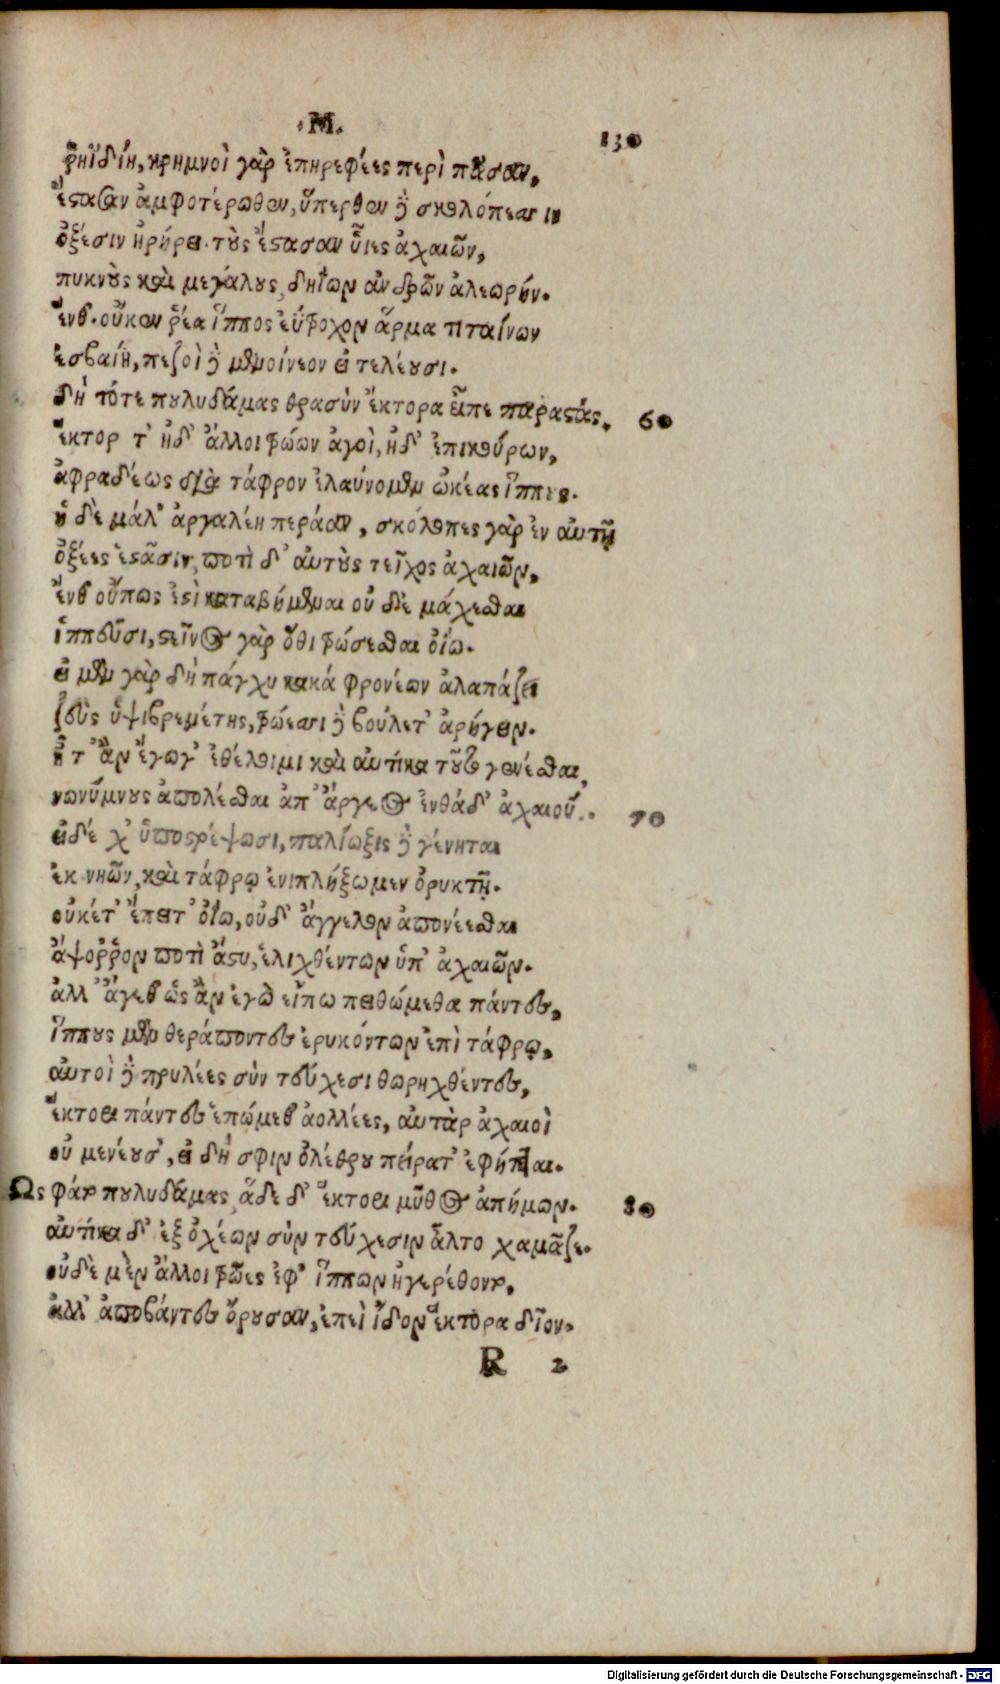 .M.
130
ῥηϊδίη, κρημνοὶ γὰρ ἐπηρεφέες περὶ πᾶσαν,
ἕστασαν ἀμφοτέρωθεν, ὕπερθεν δὲ σκολόπεσσιν
ὀξέσιν ἠρήρει. τοὺς ἕστασαν υἷες ἀχαιῶν,
πυκνοὺς καὶ μεγάλους, δηΐων ἀνδρῶν ἀλεωρήν.
ἔνθ. οὔκεν ῥέα ἵππος ἐΰτροχον ἅρμα τιταίνων
ἐσβαίη, πεζοὶ δὲ μενοίνεον εἰ τελέουσι.
δή τότε πουλυδάμας θρασὺν ἕκτορα εἶπε παραστάς. 60
ἕκτορ τ' ἠδ' ἄλλοι τρώων ἀγοὶ, ἠδ' ἐπικούρων,
ἀφραδέως διὰ τάφρον ἐλαύνομεν ὠκέας ἵππους.
ἡ δὲ μάλ' ἀργαλέη περάαν, σκόλοπες γὰρ ἐν αὐτῇ
ὀξέες ἑστᾶσιν, ποτὶ δ' αὐτοὺς τεῖχος ἀχαιῶν,
ἔνθ οὔπως ἐστὶ καταβήμεναι οὐ δὲ μάχεσθαι
ἱππεῦσι, στεῖνος γὰρ ὅθι τρώσεσθαι ὀΐω.
εἰ μὲν γὰρ δὴ πάγχυ κακά φρονέων ἀλαπάζει
ζεὺς ὑψιβρεμέτης, τρώεσσι δὲ βούλετ' ἀρήγειν.
ἦ τ' ἂν ἔγωγ' ἐθέλοιμι καὶ αὐτίκα τοῦτο γενέσθαι,
νωνύμνους ἀπολέσθαι ἀπ' ἄργεος ἐνθάδ' ἀχαιούς. 70
εἰ δέ χ' ὑποστρέψωσι, παλίωξις δὲ γένηται
ἐκ νηῶν, καὶ τάφρῳ ἐνιπλήξωμεν ὀρυκτῇ.
οὐκέτ' ἔπειτ' ὀΐω, οὐδ' ἄγγελον ἀπονέεσθαι
ἄψορῥον ποτὶ ἄστυ, ἑλιχθέντων ὑπ' ἀχαιῶν.
ἀλλ' ἄγεθ ὡς ἂν ἐγὼ εἴπω πειθώμεθα πάντες,
ἵππους μὲν θεράποντες ἐρυκόντων ἐπὶ τάφρῳ,
αὐτοὶ δὲ πρυλέες σὺν τεύχεσι θωρηχθέντες,
ἕκτορι πάντες ἑπώμεθ ἀολλέες, αὐτὰρ ἀχαιοὶ
οὐ μενέουσ', εἰ δή σφιν ὀλέθρου πείρατ' ἐφῆπται.
Ως φάτο πουλυδάμας, ἅδε δ' ἕκτορι μῦθος ἀπήμων. 80
αὐτίκα δ' ἐξ ὀχέων σὺν τεύχεσιν ἆλτο χαμᾶζε.
οὐδὲ μὲν ἄλλοι τρῶες ἐφ' ἵππων ἠγερέθοντο,
ἀλλ' ἀποβάντες ὄρουσαν, ἐπεὶ ἴδον ἕκτορα δῖον.
R 2
Digitalisierung gefördert durch die Deutsche Forschungsgemeinschaft - DFG